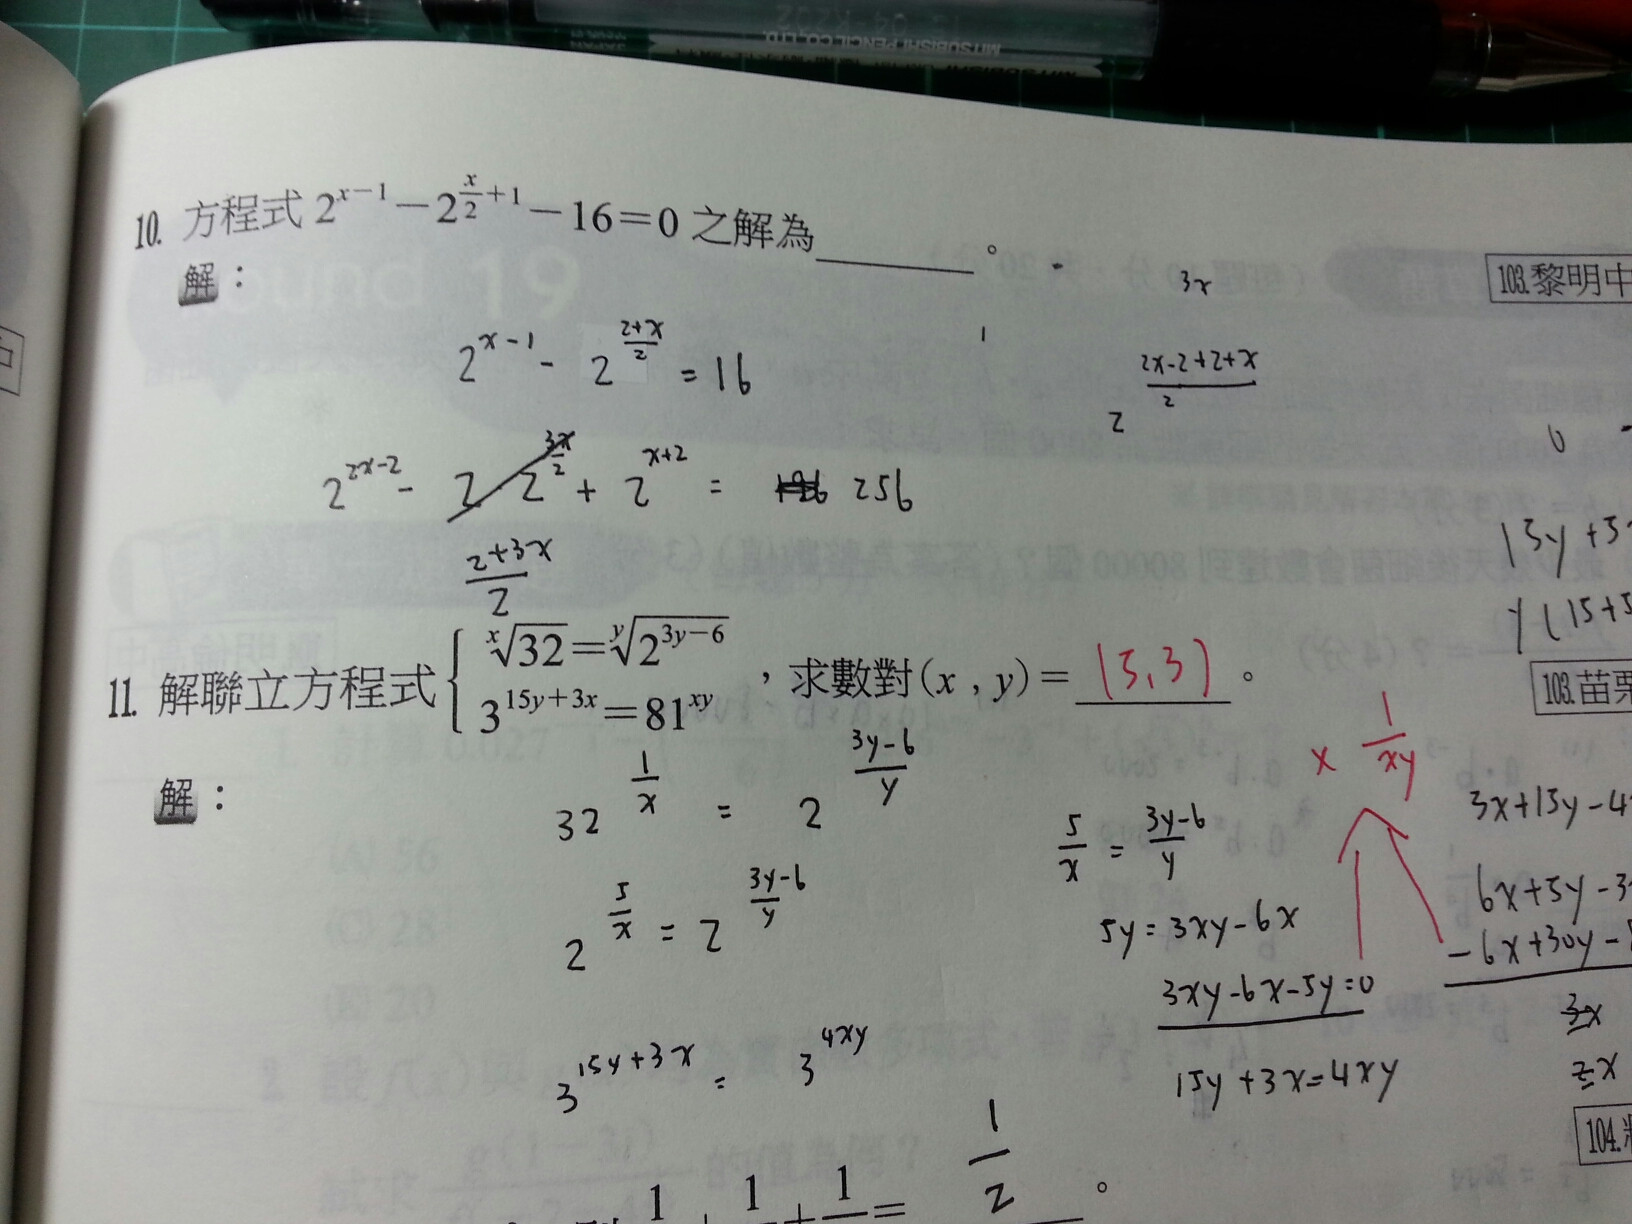 MITSUBISHI PENCIL CO., LTD.
10. 方程式 2^{x-1}-2^{\frac{x}{2}+1}-16=0 之解為______。
103.黎明中
解：
3x
2^{x-1} - 2^{\frac{2+x}{2}} = 16
2^{\frac{2x-2+2+x}{2}}
2^{2x-2} - 2 · 2^{\frac{3x}{2}} + 2^{x+2} = 256
\frac{2+3x}{2}
15y+3
y(15+5
11. 解聯立方程式 \begin{cases} \sqrt[x]{32}=\sqrt[y]{2^{3y-6}} \\ 3^{15y+3x}=81^{xy} \end{cases}，求數對(x , y)= (5,3) 。
103.苗栗
解：
32^{\frac{1}{x}} = 2^{\frac{3y-6}{y}}
x \frac{1}{xy}
2^{\frac{5}{x}} = 2^{\frac{3y-6}{y}}
\frac{5}{x} = \frac{3y-6}{y}
3x+15y-4
5y=3xy-6x
6x+5y-3
3xy-6x-5y=0
-6x+30y-
15y+3x=4xy
3x
3^{15y+3x} = 3^{4xy}
2x
104.
\frac{1}{2} 。